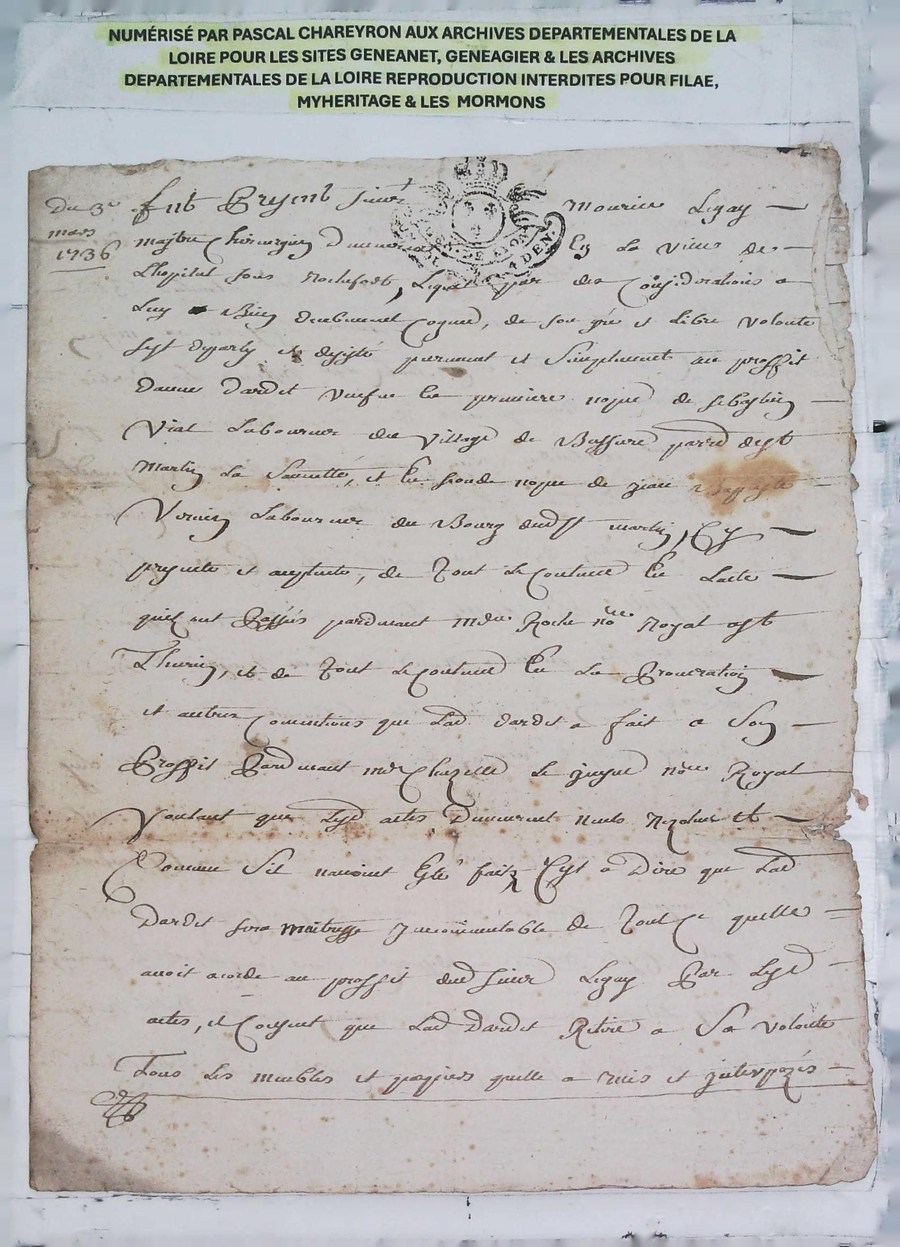 NUMÉRISÉ PAR PASCAL CHAREYRON AUX ARCHIVES DEPARTEMENTALES DE LA
LOIRE POUR LES SITES GENEANET, GENEAGIER & LES ARCHIVES
DEPARTEMENTALES DE LA LOIRE REPRODUCTION INTERDITES POUR FILAE,
MYHERITAGE & LES MORMONS
Du 3e fut Present sieur Mourice Legay
mars
1736 en la ville de
Lhopital sous Rochefort, Lequel par des Considerations a
Luy Bien Cognue, de son gré et Libre volonte
sest departy et desisté purement et simplement au proffit
Dardit veufve en premiere nopce de sebastien
Vial Laboureur du village de parr dest
Martin La Sauvetté, et en seconde nopce de jean
Laboureur du Bourg dud st martin, Cy
presente et aceptante, de Tout Le Contenue En Lacte
quils ont Passés pardevant Roche nore Royal a st
Thurin, et de Tout Le Contenue En La Procuration
et autres Conventions que Lad dardit a fait a Son
Proffit Pardevant me Chazelle Le jeusne nore Royal
Voulant que Lesd actes Demeurent nuls et
Comme Sil navoient Esté faits, Cest a Dire que Lad
Dardit sera maitresse Incommutable de Tout Ce quelle
avoit acorde au proffit dud sieur Legay Par Lesd
actes, et Consent que Lad Dardit Retire a Sa volonte
Tous Les meubles et papiers quelle a mis et interpozés